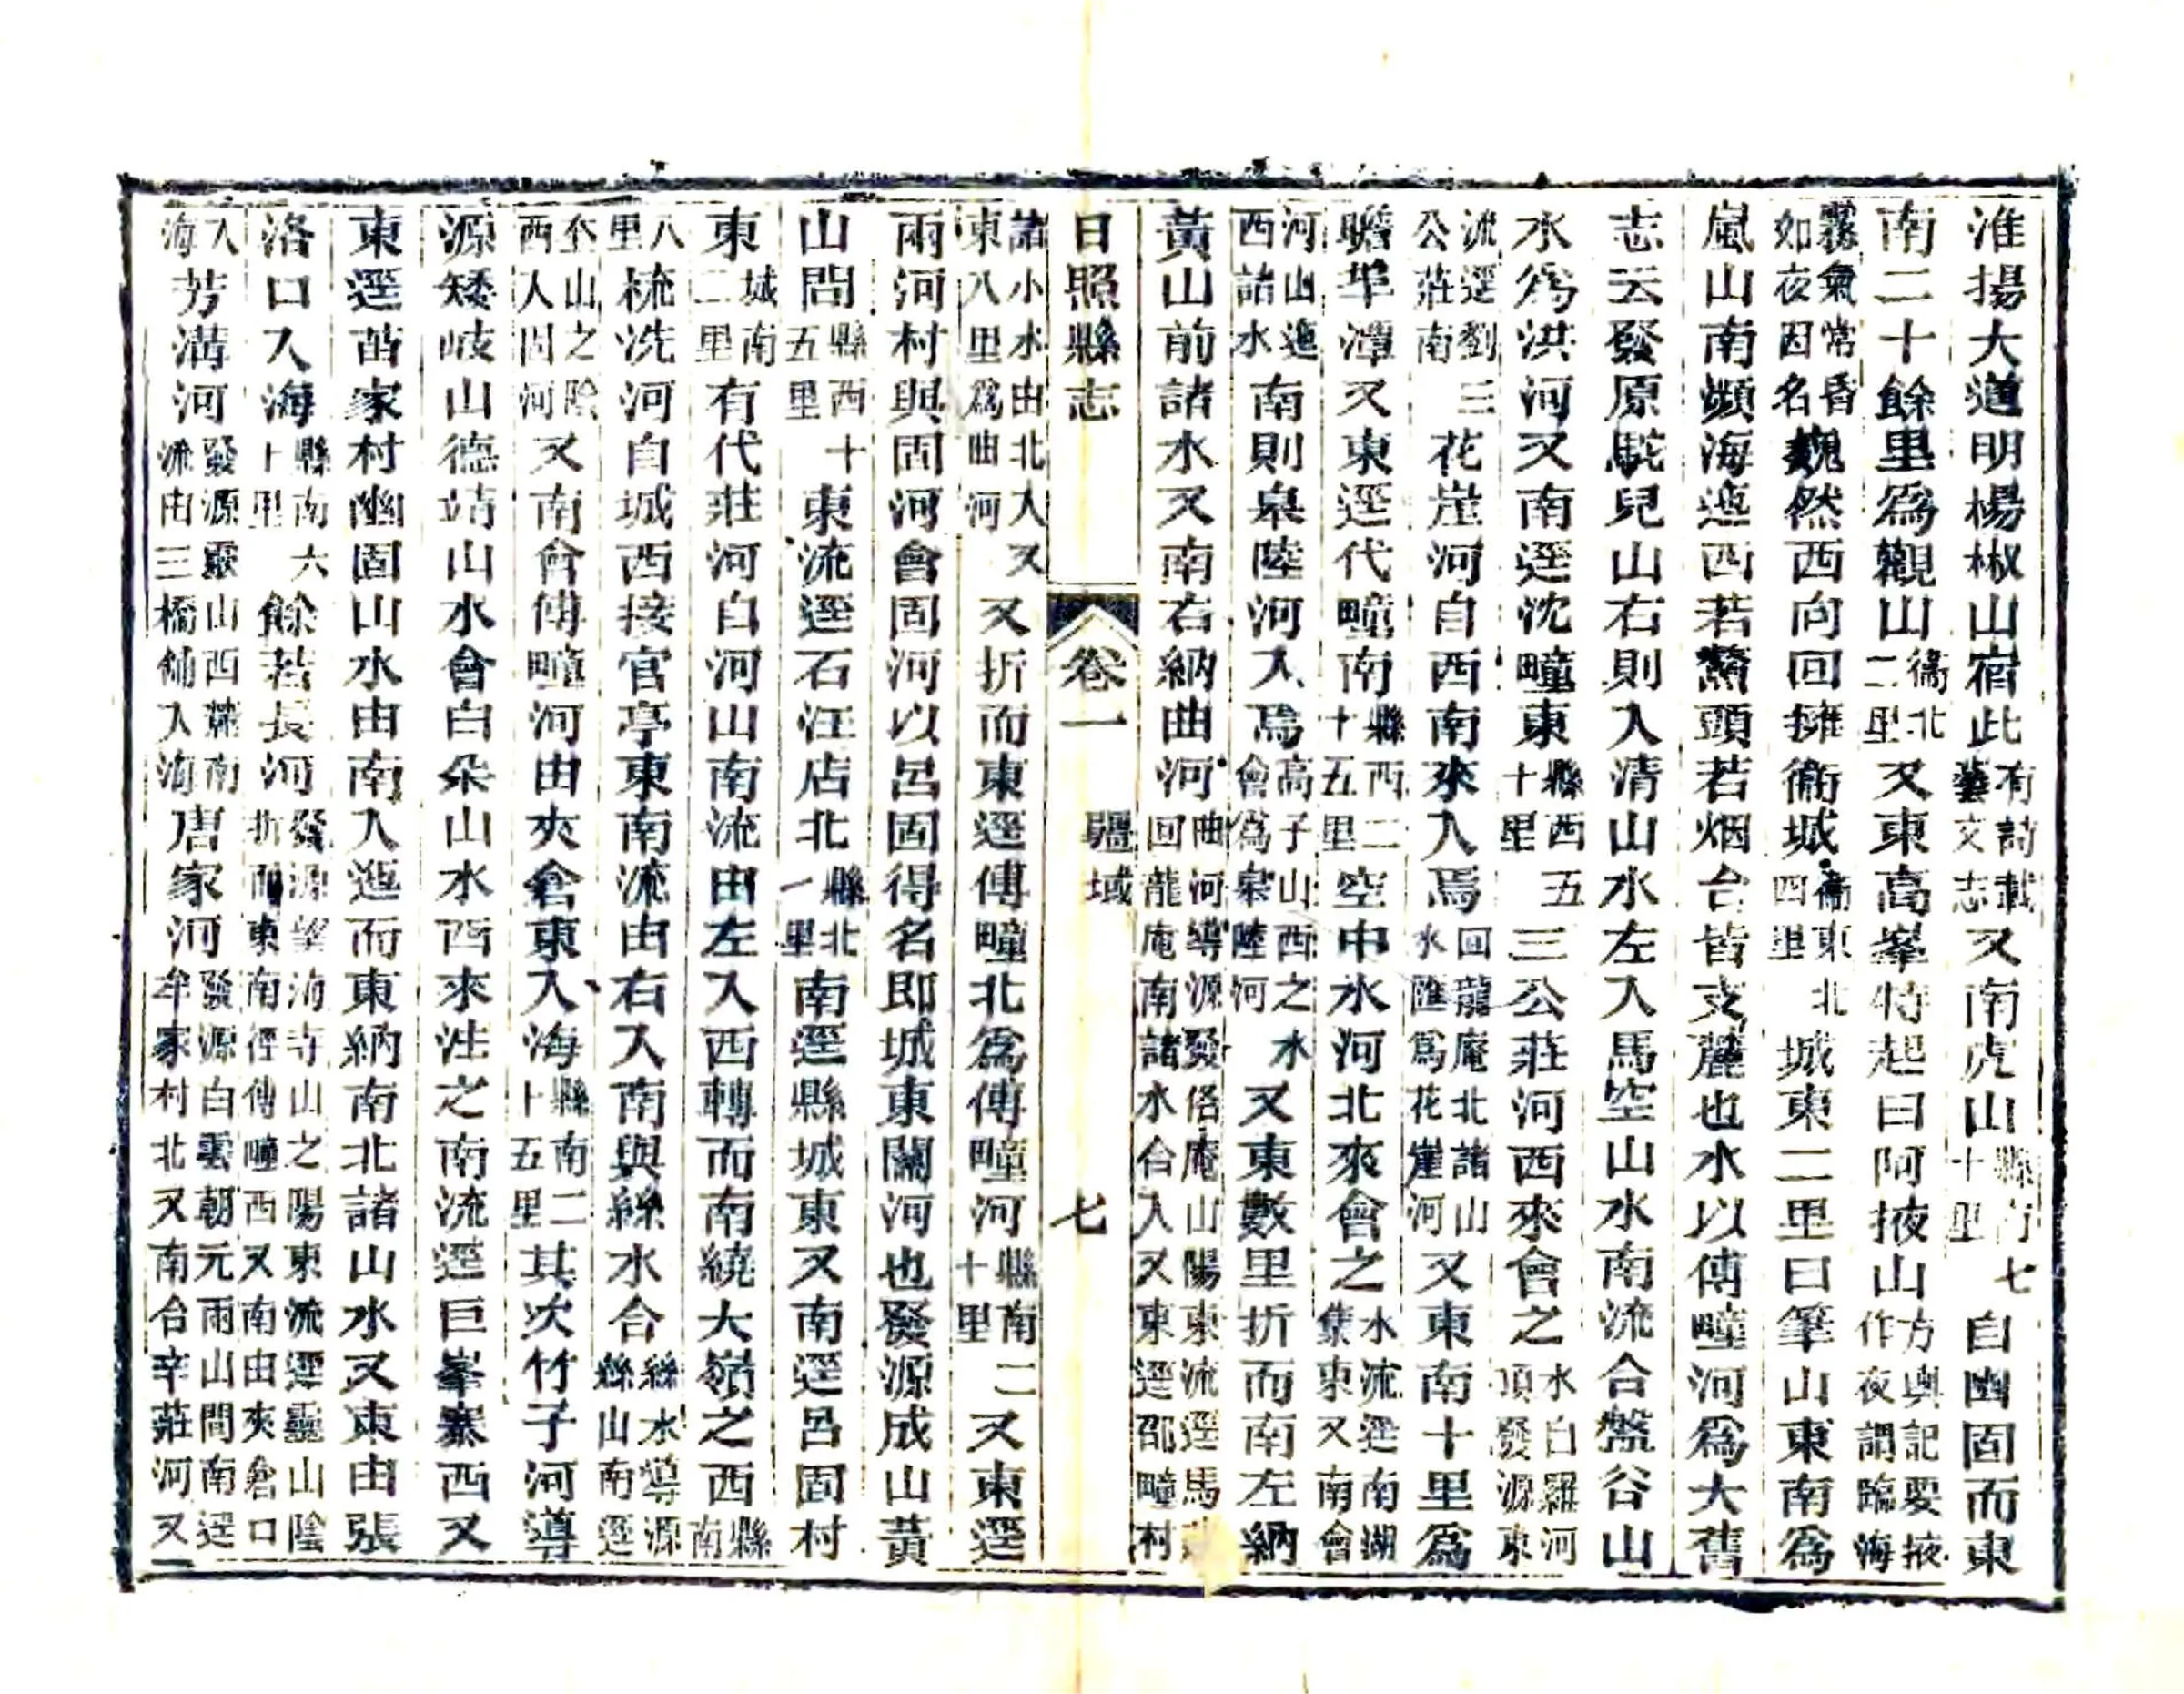 淮揚大道明楊椒山宿此有詩載藝文志又南虎山縣南七十里自幽固而東
南二十餘里爲觀山衞北二里又東高峯特起曰阿掖山方輿記要掖作夜謂臨海
霧氣常昏如夜因名巍然西向回擁衞城衞東北四里城東二里曰筆山東南爲
嵐山南瀕海迤西若鰲頭若烟台皆支麓也水以傅疃河爲大舊
志云發原駝兒山右則入清山水左入馬空山水南流合盤谷山
水爲洪河又南逕沈疃東縣西五十里三公莊河西來會之水白羅河頂發源東
流逕劉三公莊南花崖河自西南來入焉回龍庵北諸山水匯爲花崖河又東南十里爲
瞻埠潭又東逕代疃南縣西二十五里空中水河北來會之水流逕南湖集東又南會
河山迤西諸水南則臯陸河入焉高子山西之水會爲臯陸河又東數里折而南左納
黃山前諸水又南右納曲河曲河導源發佫庵山陽東流逕馬回龍庵南諸水合入又東逕邵疃村
日照縣志
卷一
疆域
七
諸小水由北入又東八里爲曲河又折而東逕傅疃北爲傅疃河縣南二十里又東逕
兩河村與固河會固河以呂固得名即城東關河也發源成山黃
山間縣西十五里東流逕石汪店北縣北一里南逕縣城東又南逕呂固村
東城南二里有代莊河自河山南流由左入西轉而南繞大嶺之西縣南
八里梳洗河自城西接官亭東南流由右入南與絲水合絲水導源絲山南逕
峚山之陰西入固河又南會傅疃河由夾倉東入海縣南二十五里其次竹子河導
源矮岐山德靖山水會白朵山水西來注之南流逕巨峯寨西又
東逕苗家村幽固山水由南入迤而東納南北諸山水又東由張
洛口入海縣南六十里餘若長河發源望海寺山之陽東流逕靈山陰折而東南徑傅疃西又南由夾倉口
入海芳溝河發源靈山西麓南流由三橋舖入海唐家河發源白雲朝元雨山間南逕牟家村北又南合辛莊河又